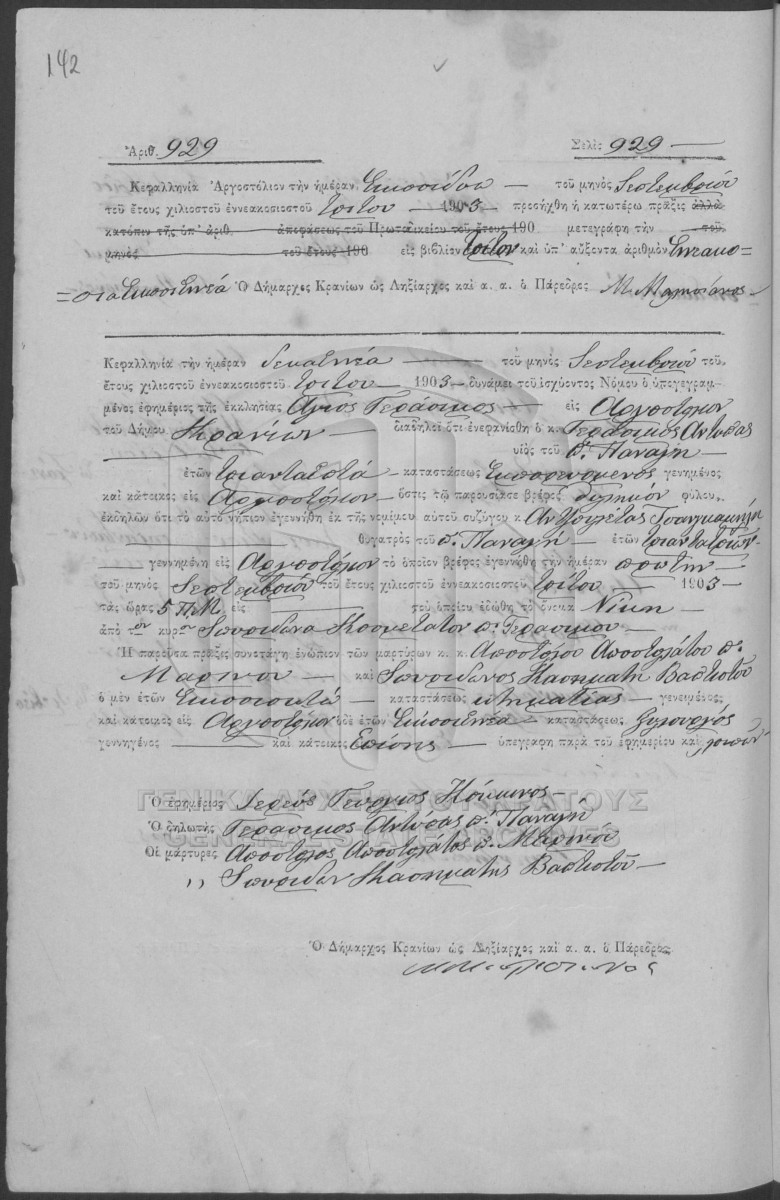 142
Ἀριθ. 929 Σελὶς 929
Κεφαλληνία Ἀργοστόλιον τὴν ἡμέραν Εἰκοσίδυο τοῦ μηνὸς Σεπτεμβρίου
τοῦ ἔτους χιλιοστοῦ ἐννεακοσιοστοῦ τρίτου 1903 προσήχθη ἡ κατωτέρω πρᾶξις ἀλλὰ
κατόπιν τῆς ὑπ' ἀριθ. ἀποφάσεως τοῦ Πρωτοδικείου τοῦ ἔτους 190 μετεγράφη τὴν τοῦ
μηνὸς τοῦ ἔτους 190 εἰς βιβλίον τρίτον καὶ ὑπ' αὔξοντα ἀριθμὸν Ἐννακο=
=σια εἰκοσιεννέα Ὁ Δήμαρχος Κρανίων ὡς Ληξίαρχος καὶ α. α. ὁ Πάρεδρος
Κεφαλληνία τὴν ἡμέραν δεκαεννέα τοῦ μηνὸς Σεπτεμβρίου τοῦ
ἔτους χιλιοστοῦ ἐννεακοσιοστοῦ τρίτου 1903 δυνάμει τοῦ ἰσχύοντος Νόμου ὁ ὑπογεγραμ-
μένος ἐφημέριος τῆς ἐκκλησίας Ἅγιος Γεράσιμος εἰς Ἀργοστόλιον
τοῦ Δήμου Κρανίων διαδηλοῖ ὅτι ἐνεφανίσθη ὁ κ. Γεράσιμος Αντύπας
υἱὸς τοῦ π. Παναγῆ
ἐτῶν τριανταεπτά καταστάσεως Ἐμπορευόμενος γενημένος
καὶ κάτοικος εἰς Ἀργοστόλιον ὅστις τῷ παρουσίασε βρέφος θηλυκόν φύλου,
ἐκδηλῶν ὅτι τὸ αὐτὸ νήπιον ἐγεννήθη ἐκ τῆς νομίμου αὐτοῦ συζύγου κ.
θυγατρὸς τοῦ π. Παναγῆ ἐτῶν τριαντατριῶν
γεννημένη εἰς Ἀργοστόλιον τὸ ὁποῖον βρέφος ἐγεννήθη τὴν ἡμέραν πρώτην
τοῦ μηνὸς Σεπτεμβρίου τοῦ ἔτους χιλιοστοῦ ἐννεακοσιοστοῦ τρίτου 1903
τὰς ὥρας 5 Π.Μ. εἰς τοῦ ὁποίου ἐδώθη τὸ ὄνομα Νίκη
ἀπὸ τὸν κύριον Σπυρίδωνα Κοσμετάτον π. Γερασίμου
Ἡ παροῦσα πρᾶξις συνετάγη ἐνώπιον τῶν μαρτύρων κ. κ. Αποστόλου Αποστολάτου π.
Μαρίνου καὶ Σπυρίδωνος Κασιμάτη Βαπτιστοῦ
ὁ μὲν ἐτῶν Εἰκοσιοκτώ καταστάσεως κτηματίας γενειμένος
καὶ κάτοικος εἰς Ἀργοστόλιον ὁ δὲ ἐτῶν Εἰκοσιεννέα καταστάσεως ξυλουργός
γεννηγένος καὶ κάτοικος Επίσης ὑπεγράφη παρὰ τοῦ ἐφημερίου καὶ λοιπῶν
ΓΕΝΙΚΑ ΑΡΧΕΙΑ ΤΟΥ ΚΡΑΤΟΥΣ
GENERAL STATE ARCHIVES
Ὁ ἐφημέριος Ιερεύς Γεώργιος
Ὁ δηλωτὴς Γεράσιμος Αντύπας π. Παναγῆ
Οἱ μάρτυρες Αποστόλος Αποστολάτος π. Μαρίνου
,, Σπυρίδων Κασιμάτης Βαπτιστοῦ
Ὁ Δήμαρχος Κρανίων ὡς Ληξίαρχος καὶ α. α. ὁ Πάρεδρος